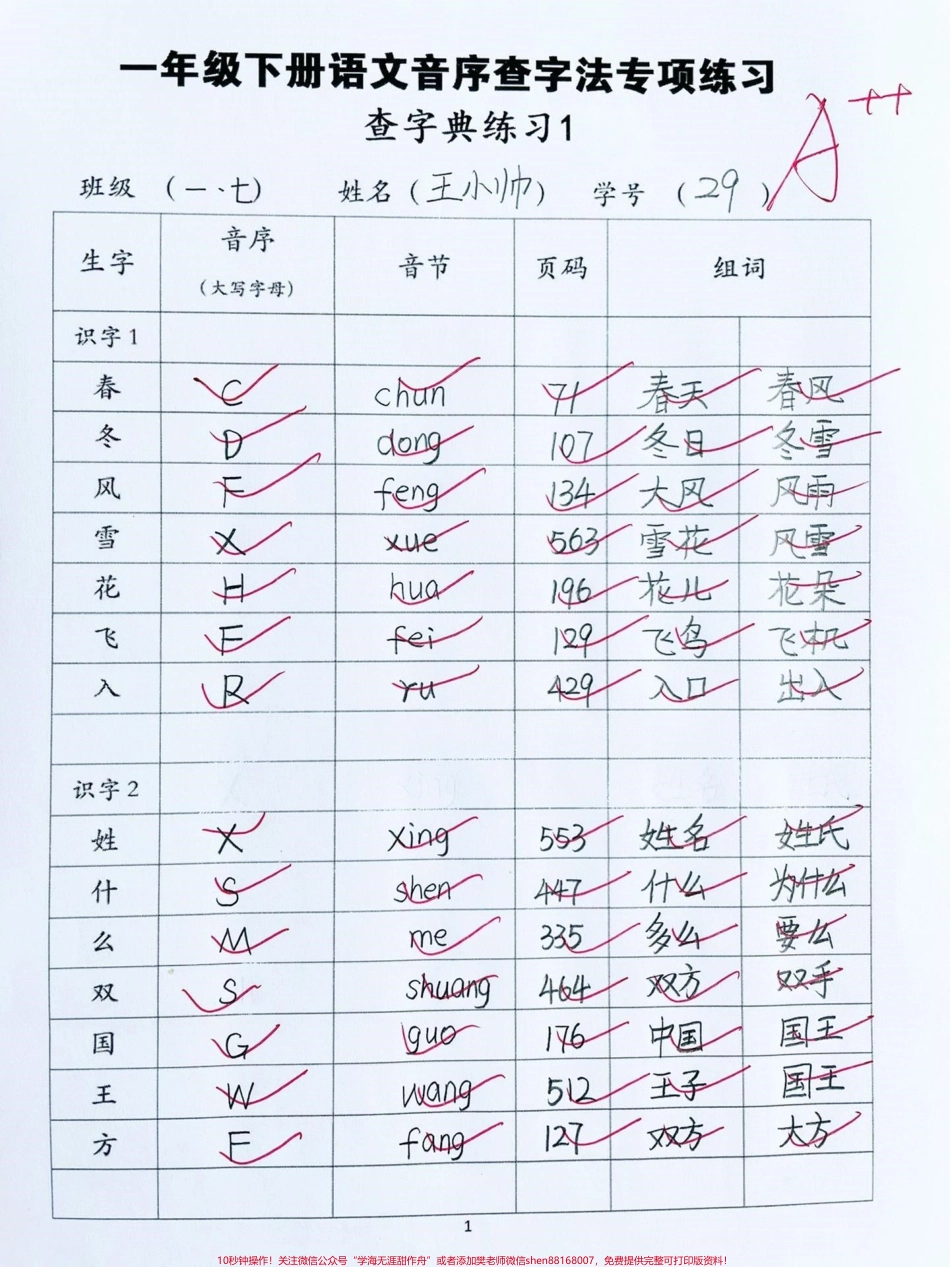 一年级下册语文音序查字法专项练习
A++
查字典练习1
班级 (一、七) 姓名 (王小帅) 学号 (29)
生字 音序 (大写字母) 音节 页码 组词
识字1
春 C chun 71 春天 春风
冬 D dong 107 冬日 冬雪
风 F feng 134 大风 风雨
雪 X xue 563 雪花 风雪
花 H hua 196 花儿 花朵
飞 F fei 129 飞鸟 飞机
入 R ru 429 入口 出入
识字2
姓 X xing 553 姓名 姓氏
什 S shen 447 什么 为什么
么 M me 335 多么 要么
双 S shuang 464 双方 双手
国 G guo 176 中国 国王
王 W wang 512 王子 国王
方 F fang 127 双方 大方
1
10秒钟操作！关注微信公众号“学海无涯甜作舟”或者添加樊老师微信shen88168007，免费提供完整可打印版资料！